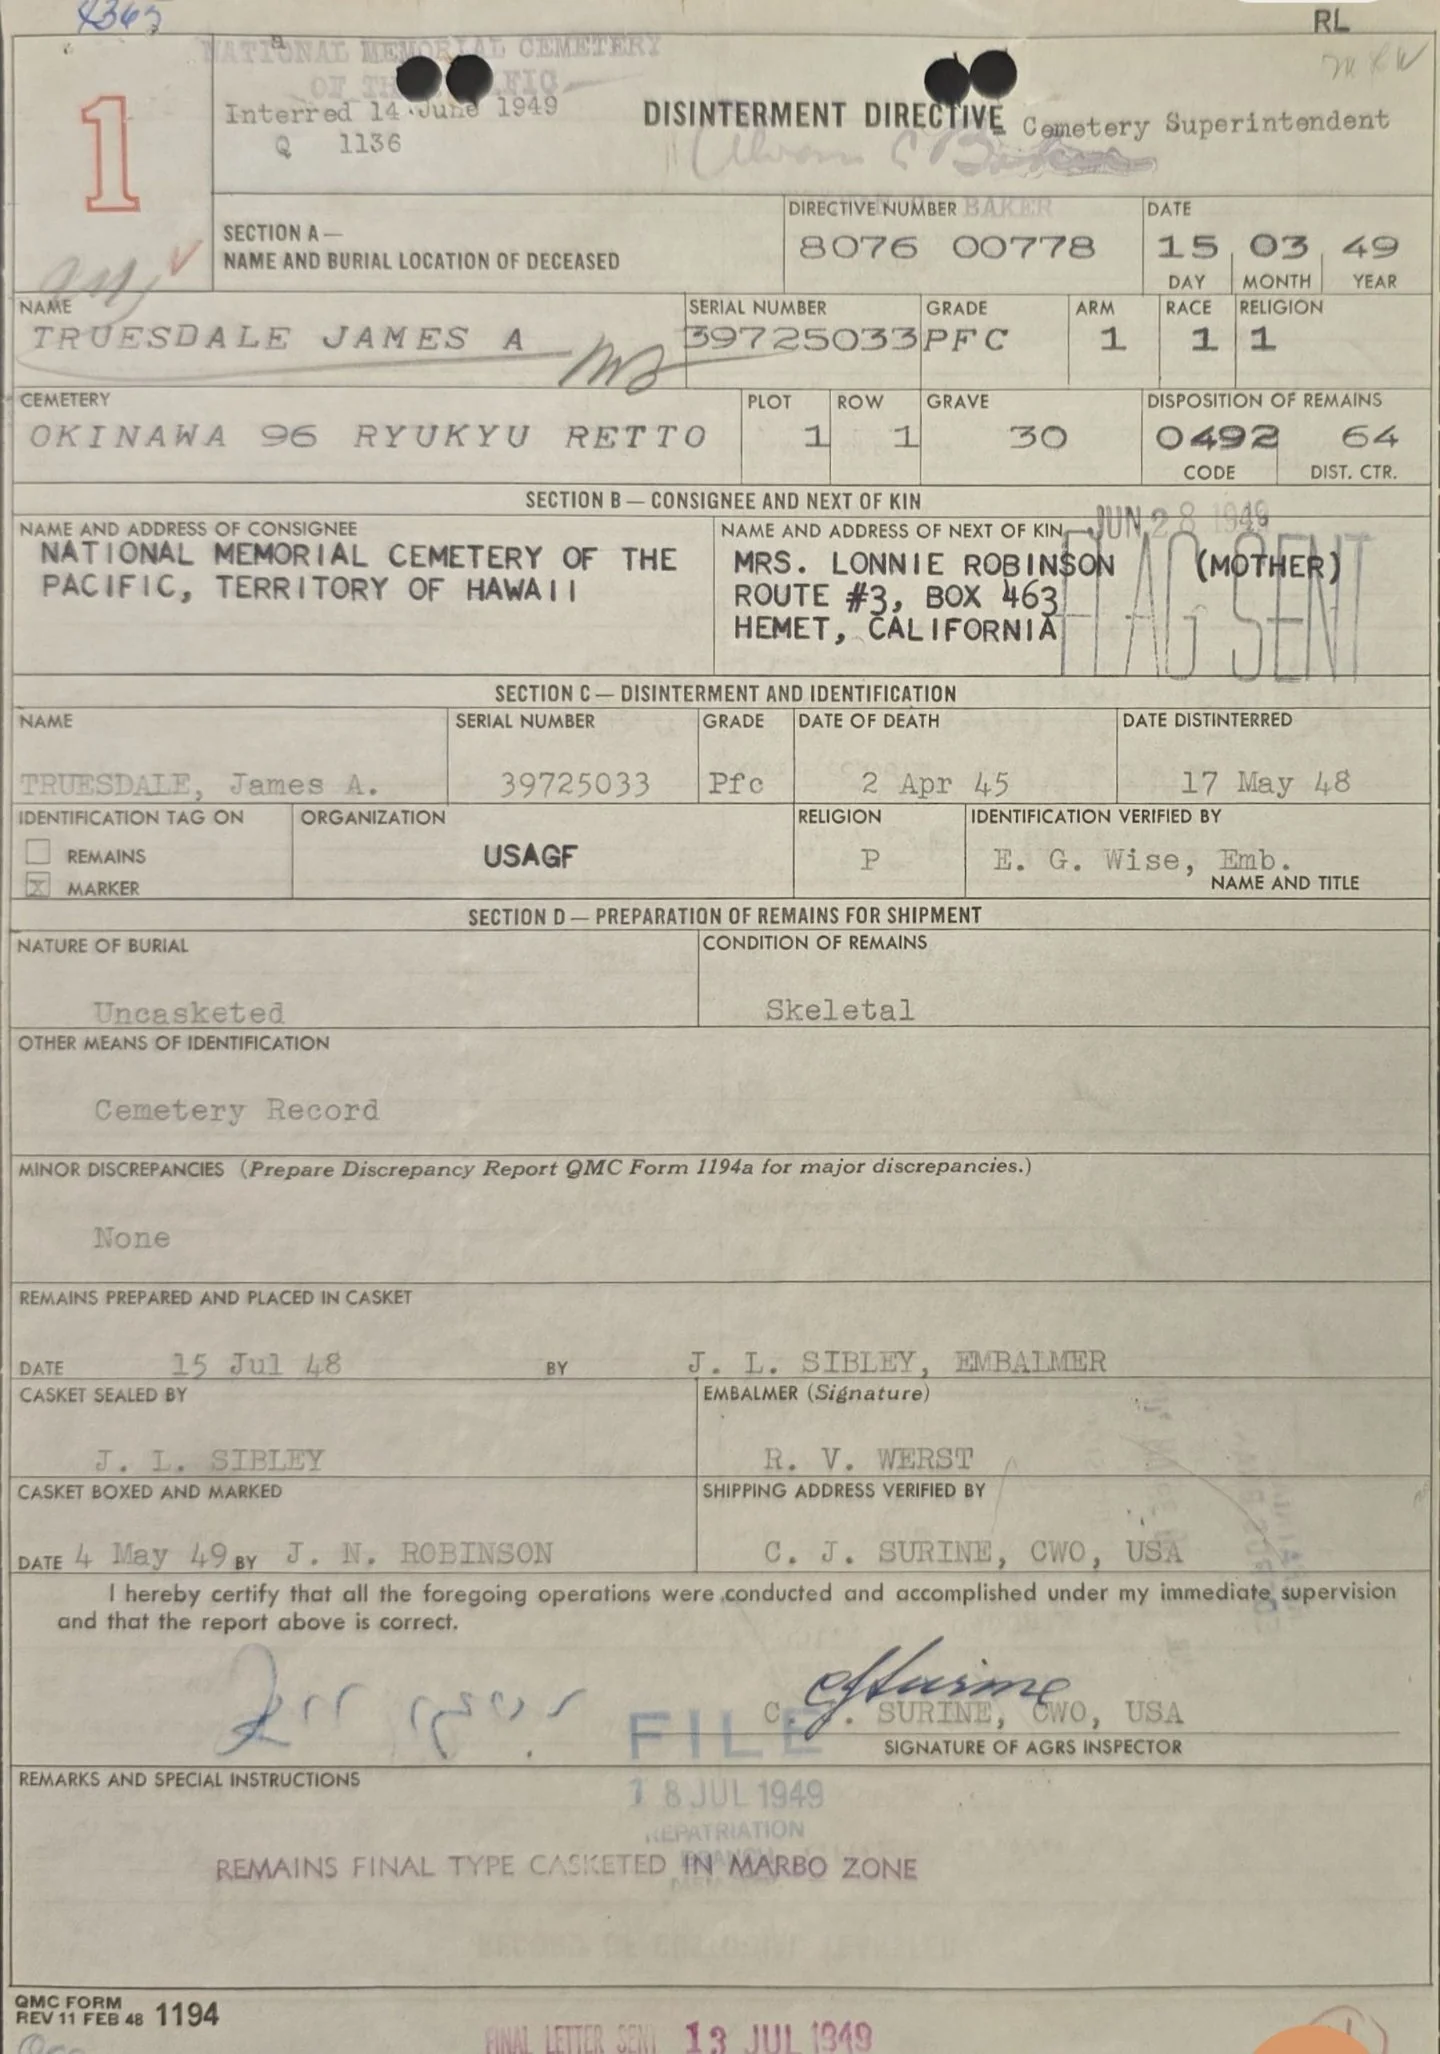 4365
RL
NATIONAL MEMORIAL CEMETERY
OF THE
Interred 14 June 1949
Q 1136
1
DISINTERMENT DIRECTIVE
Cemetery Superintendent
BAKER
SECTION A—
NAME AND BURIAL LOCATION OF DECEASED
DIRECTIVE NUMBER
8076 00778
DATE
15 03 49
DAY MONTH YEAR
NAME
TRUESDALE JAMES A
SERIAL NUMBER
39725033
GRADE
PFC
ARM
1
RACE
1
RELIGION
1
CEMETERY
OKINAWA 96 RYUKYU RETTO
PLOT
1
ROW
1
GRAVE
30
DISPOSITION OF REMAINS
0492 64
CODE DIST. CTR.
SECTION B—CONSIGNEE AND NEXT OF KIN
NAME AND ADDRESS OF CONSIGNEE
NATIONAL MEMORIAL CEMETERY OF THE
PACIFIC, TERRITORY OF HAWAII
NAME AND ADDRESS OF NEXT OF KIN
JUN 28 1949
MRS. LONNIE ROBINSON (MOTHER)
ROUTE #3, BOX 463
HEMET, CALIFORNIA
FLAG SENT
SECTION C—DISINTERMENT AND IDENTIFICATION
NAME
TRUESDALE, James A.
SERIAL NUMBER
39725033
GRADE
Pfc
DATE OF DEATH
2 Apr 45
DATE DISTINTERRED
17 May 48
IDENTIFICATION TAG ON
REMAINS
X MARKER
ORGANIZATION
USAGF
RELIGION
P
IDENTIFICATION VERIFIED BY
E. G. Wise, Emb.
NAME AND TITLE
SECTION D—PREPARATION OF REMAINS FOR SHIPMENT
NATURE OF BURIAL
Uncasketed
CONDITION OF REMAINS
Skeletal
OTHER MEANS OF IDENTIFICATION
Cemetery Record
MINOR DISCREPANCIES (Prepare Discrepancy Report QMC Form 1194a for major discrepancies.)
None
REMAINS PREPARED AND PLACED IN CASKET
DATE 15 Jul 48 BY J. L. SIBLEY, EMBALMER
CASKET SEALED BY
J. L. SIBLEY
EMBALMER (Signature)
R. V. WERST
CASKET BOXED AND MARKED
DATE 4 May 49 BY J. N. ROBINSON
SHIPPING ADDRESS VERIFIED BY
C. J. SURINE, CWO, USA
I hereby certify that all the foregoing operations were conducted and accomplished under my immediate supervision
and that the report above is correct.
CJSurine
C. J. SURINE, CWO, USA
SIGNATURE OF AGRS INSPECTOR
FILE
18 JUL 1949
REPATRIATION
BRANCH
REMARKS AND SPECIAL INSTRUCTIONS
REMAINS FINAL TYPE CASKETED IN MARBO ZONE
QMC FORM
REV 11 FEB 48 1194
FINAL LETTER SENT 13 JUL 1949